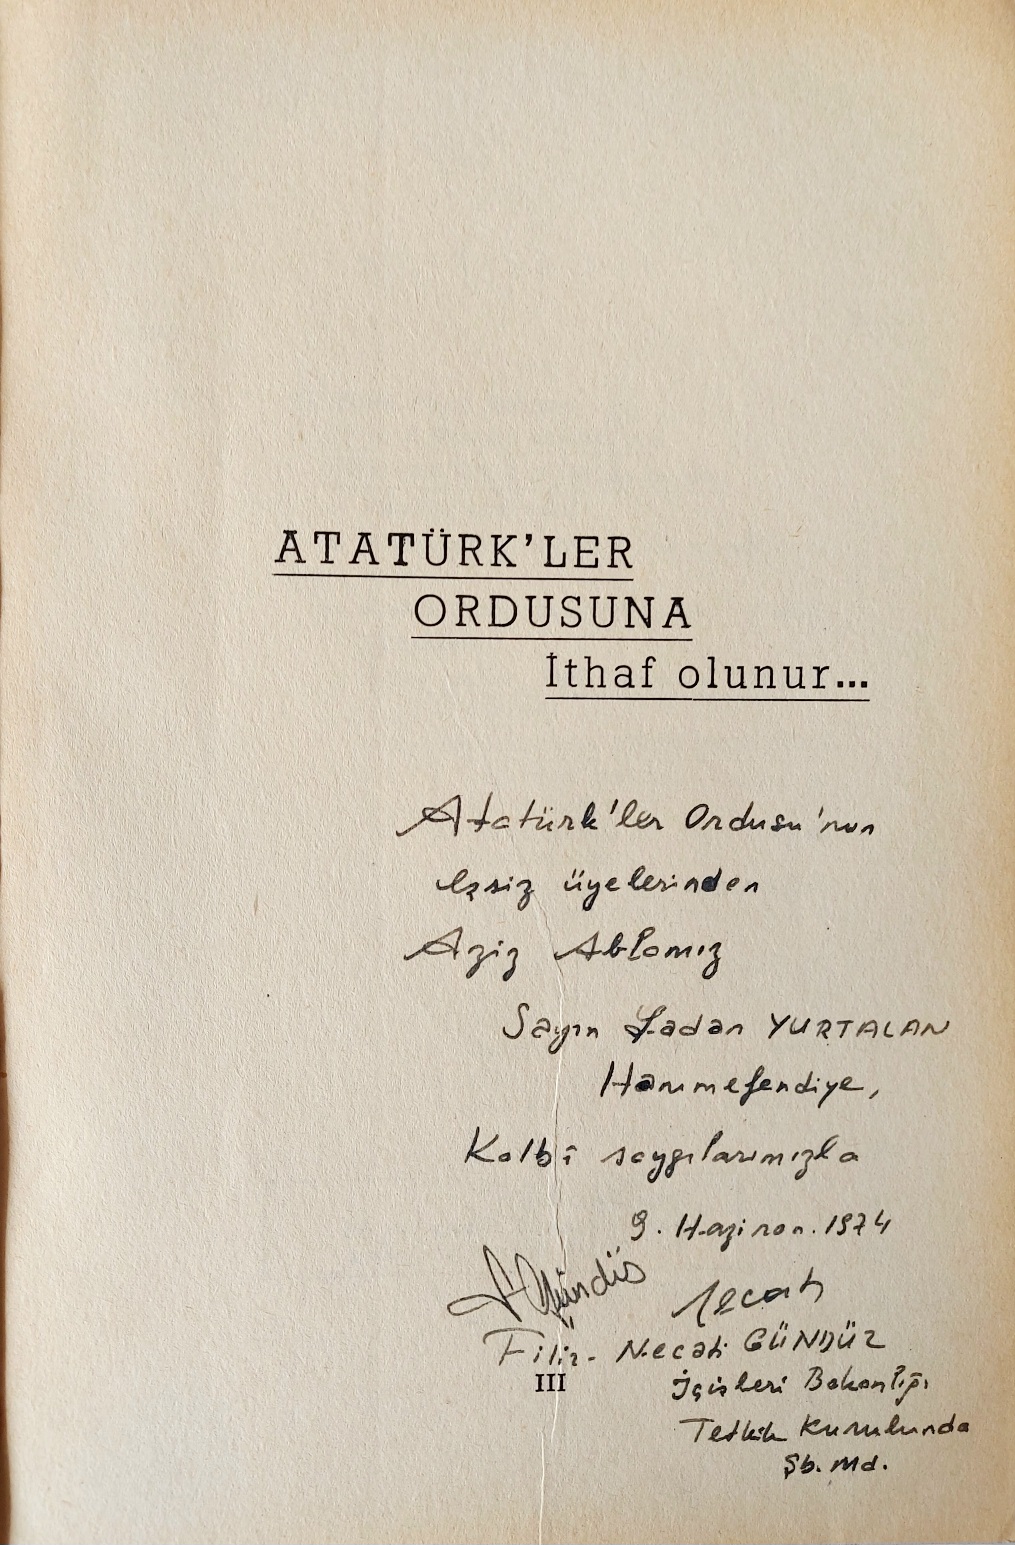 ATATÜRK'LER
ORDUSUNA
İthaf olunur...
Atatürk'ler Ordusu'nun
eşsiz üyelerinden
Aziz Ablamız
Sayın Ladan YURTALAN
Hanımefendiye,
Kalbî saygılarımızla
9. Haziran. 1974
Gündüz Necati
Filiz - Necati GÜNDÜZ
III
İçişleri Bakanlığı
Tetkik Kurulunda
Şb. Md.